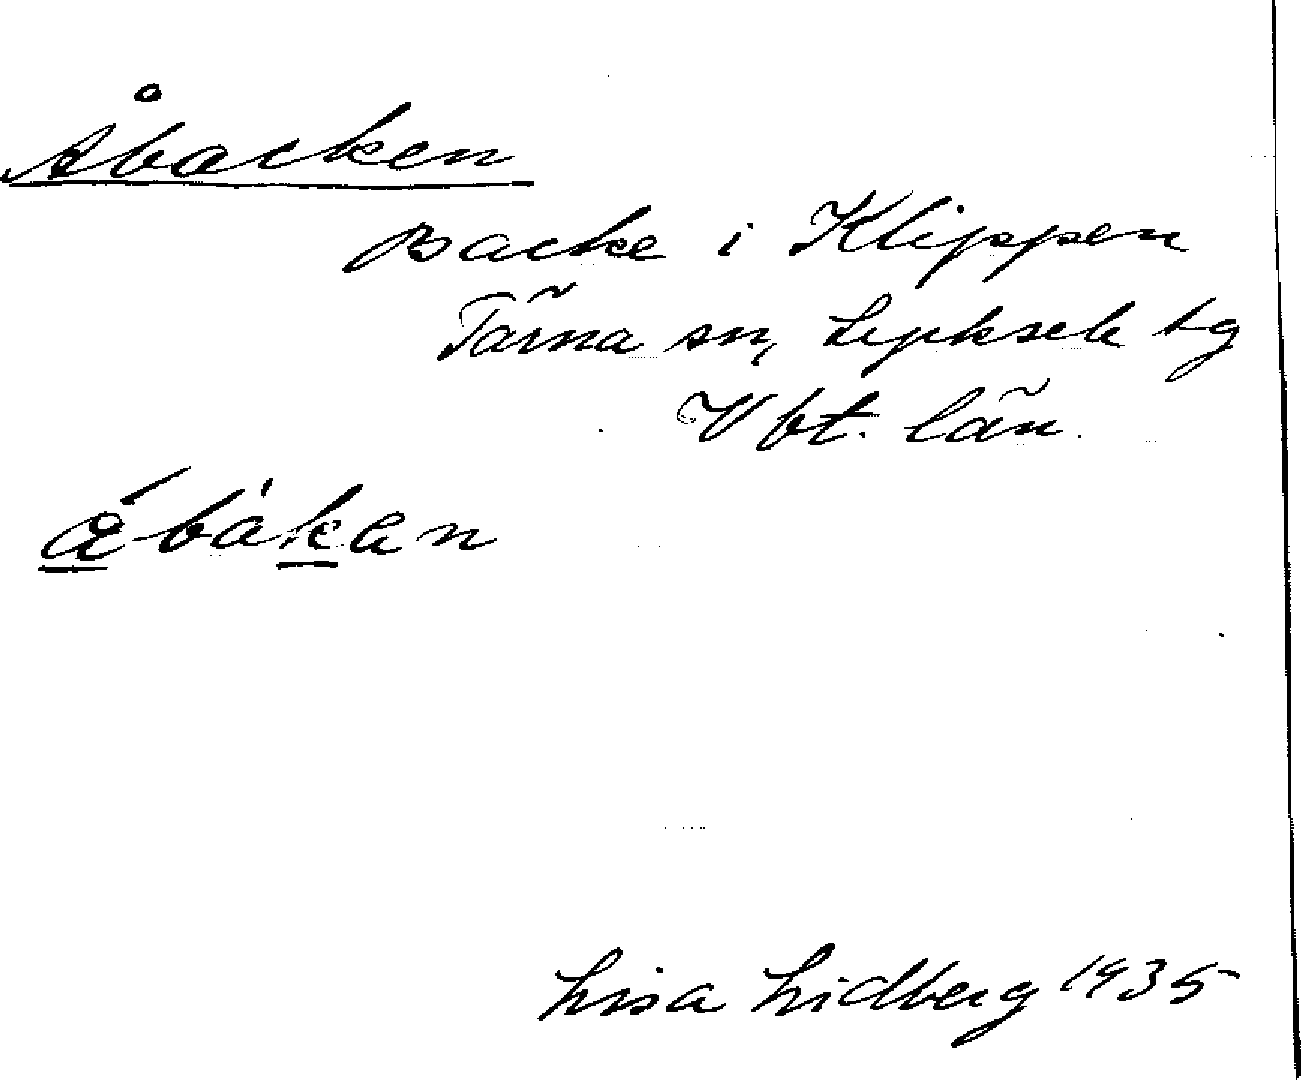 Åbacken
Backe i Klippen
Tärna sn, Lycksele tg
Vbt. län.
ǻbàkan
Lisa Lidberg 1935